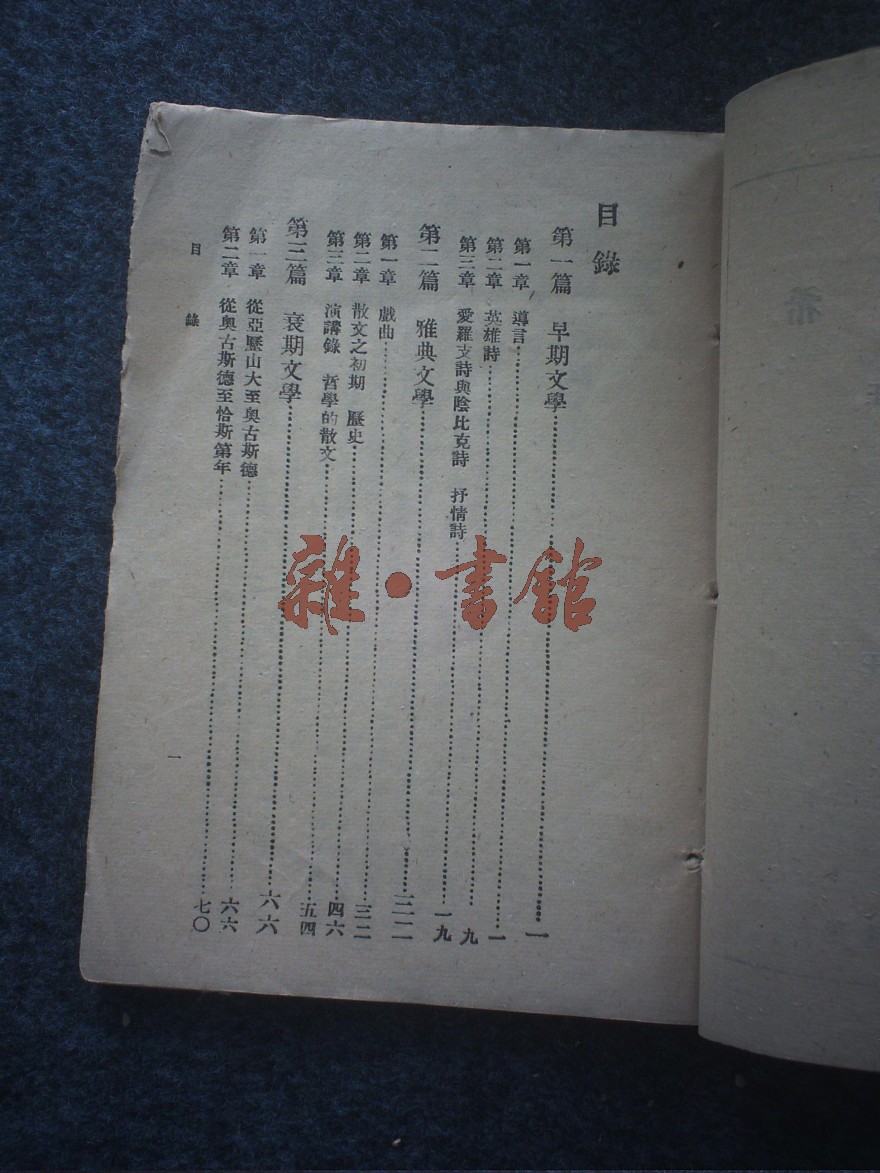 目錄
第一篇 早期文學……一
第一章 導言……一
第二章 英雄詩……九
第三章 愛羅支詩與陰比克詩 抒情詩……一九
第二篇 雅典文學……三二
第一章 戲曲……三二
第二章 散文之初期 歷史……四六
第三章 演講錄 哲學的散文……五四
第三篇 衰期文學……六六
第一章 從亞歷山大至奧古斯德……六六
第二章 從奧古斯德至恰斯第年……七〇
目 錄
一
雜·書館